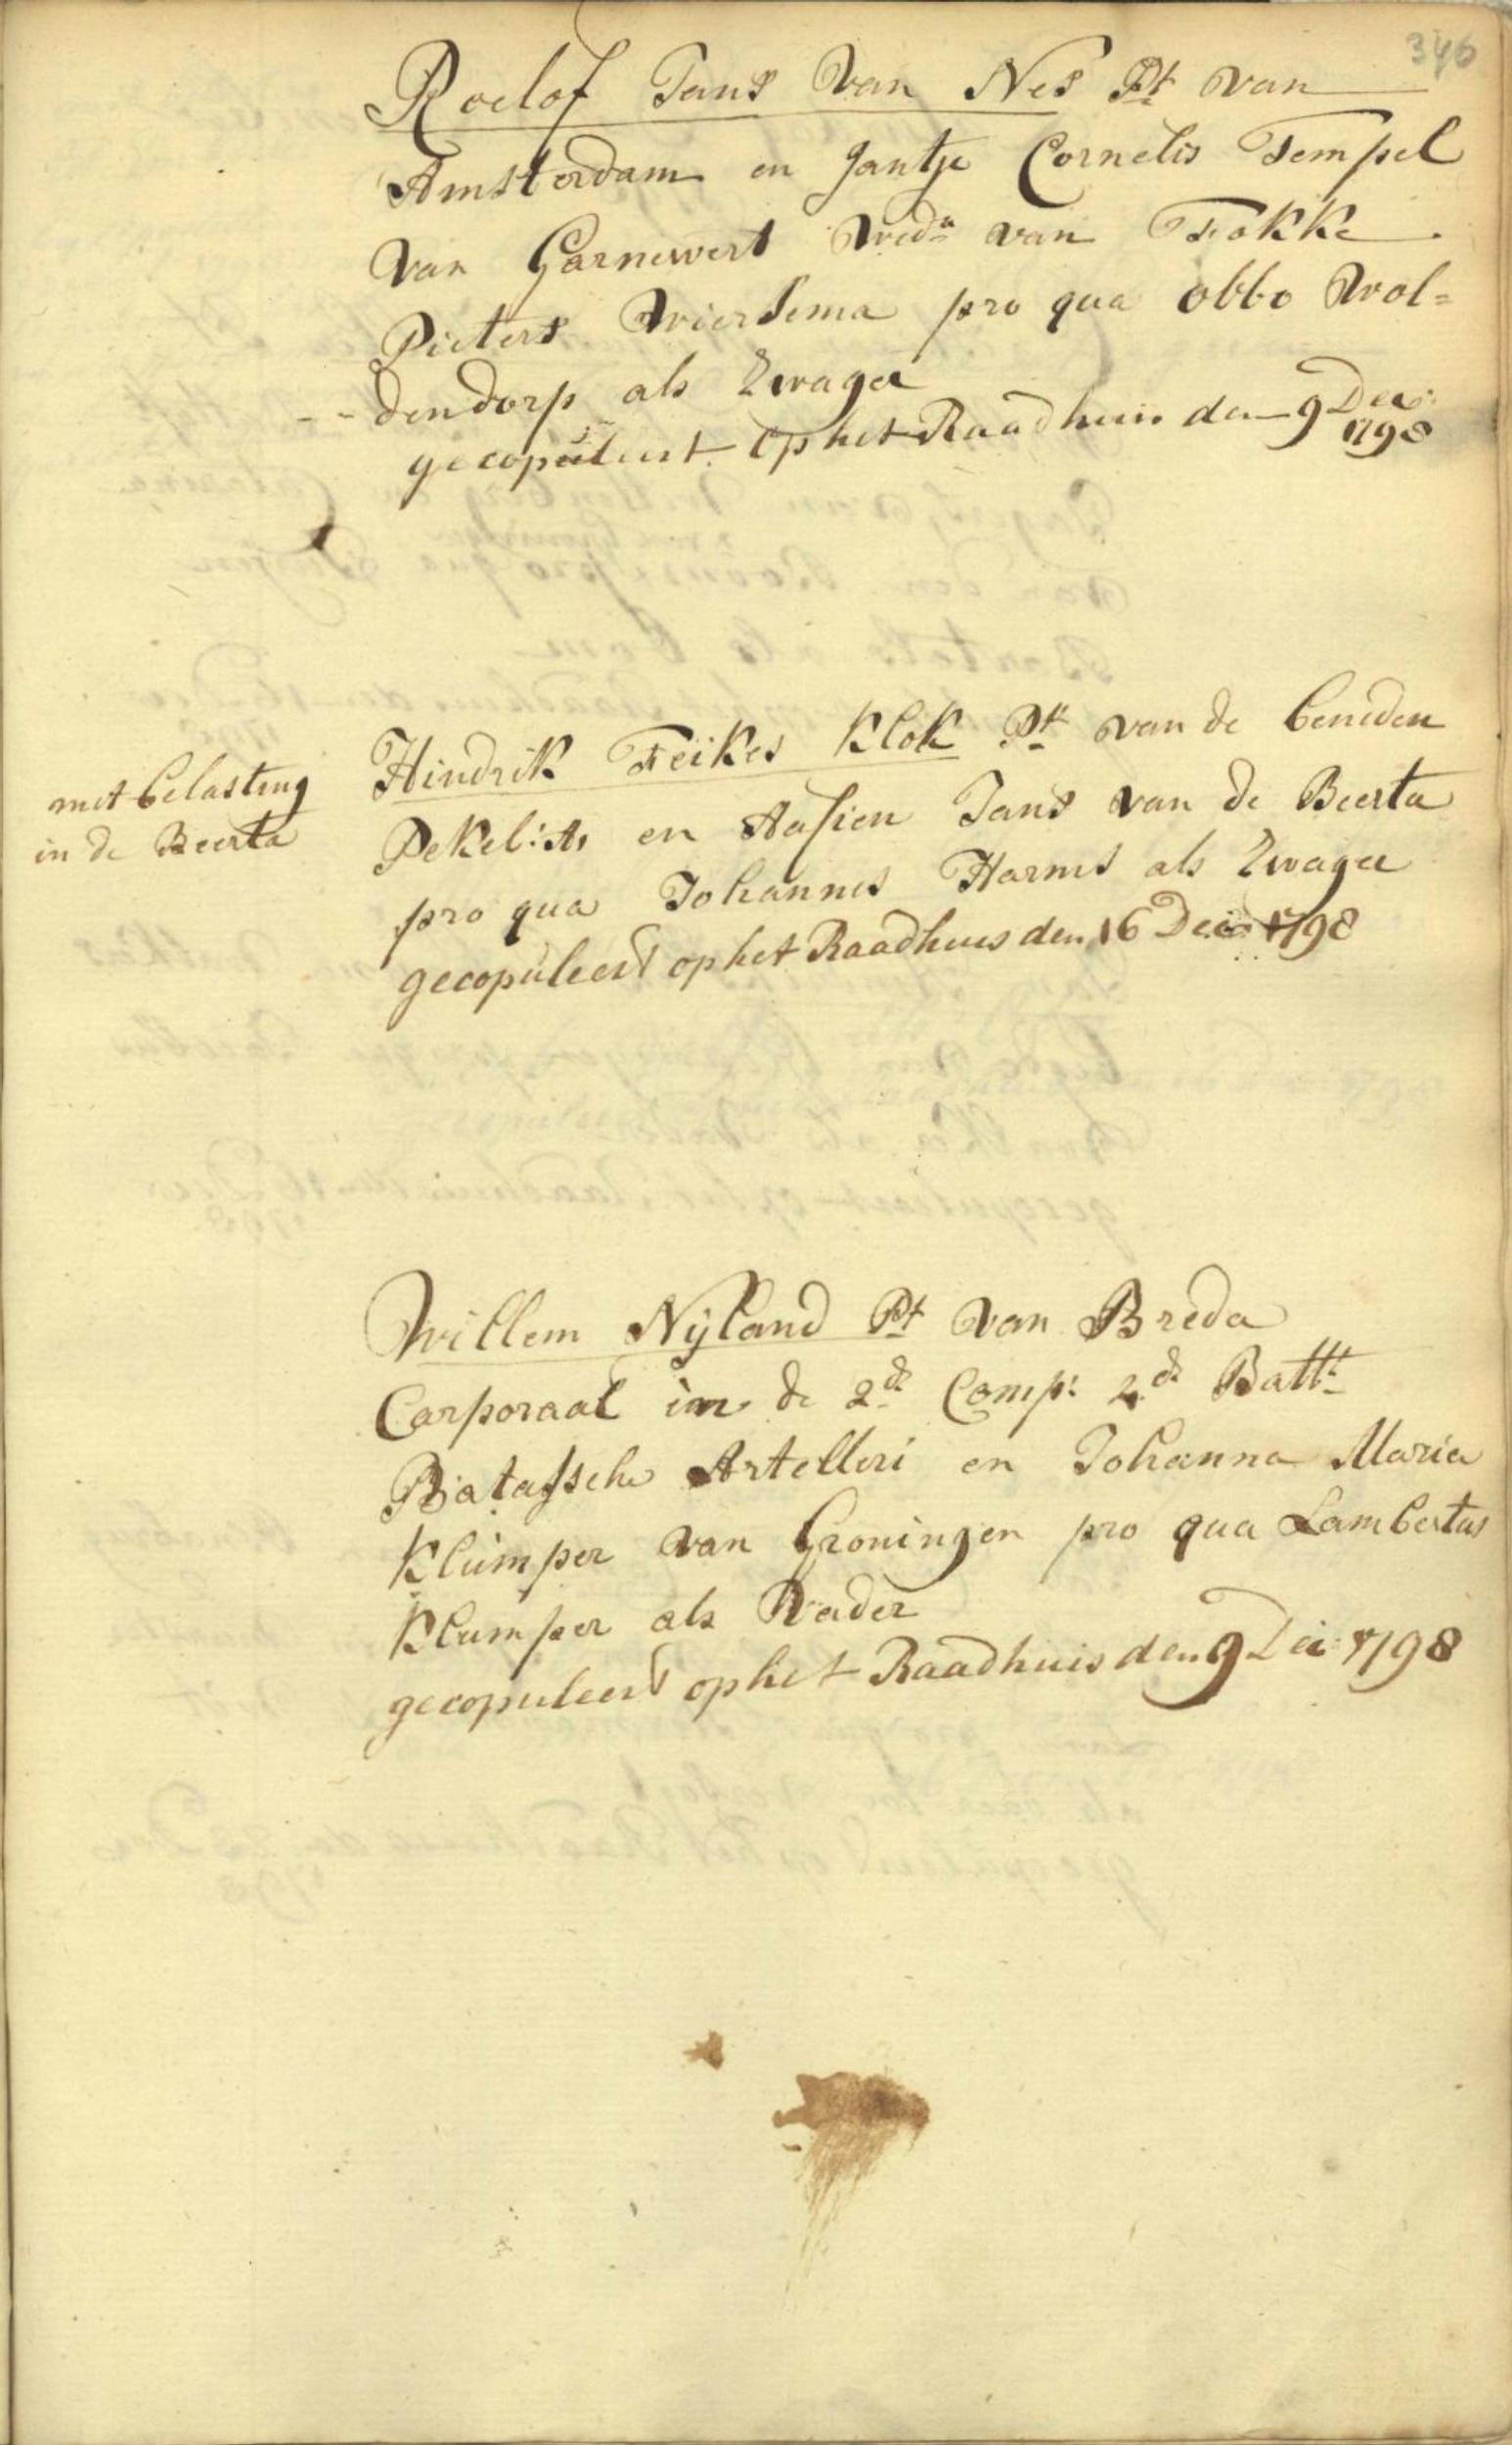 346
Roelof Jans Van Nes Pt van
Amsterdam en Jantje Cornelis Tempel
van Garnewert Wedu van Fokke
Pieters Wiersema pro qua obbo Wol=
-- dendorp als Zwager
gecopuleert op het Raadhuis den 9 Dec:
1798
met belasting
in de Beerta
Hindrik Feikes Klok Pt van de beneden
Pekel:A: en Aafien Jans van de Beerta
pro qua Johannes Harms als Zwager
gecopuleert op het Raadhuis den 16 Dec 1798
Willem Nijland Pt van Breda
Carporaal in de 2de Comp: 4de Battt
Batafsche Artelleri en Johanna Maria
Klumper van Groningen pro qua Lambertus
Klumper als Vader
gecopuleert op het Raadhuis den 9 Dec: 1798